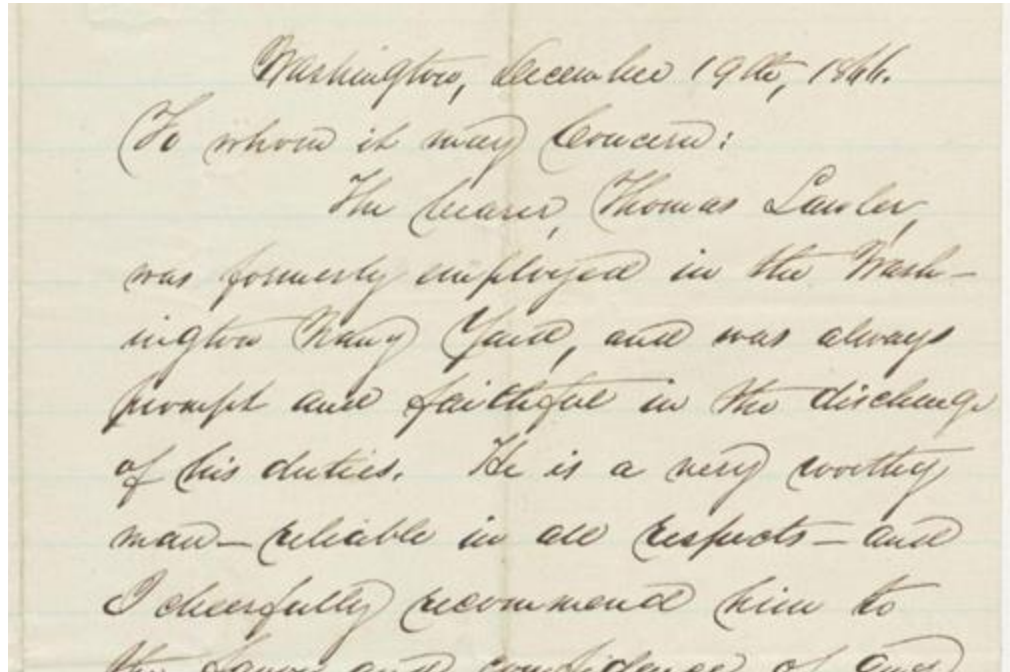 Washington, December 19th, 1866.
To whom it may Concern:
The bearer, Thomas Lawler,
was formerly employed in the Wash-
ington Navy Yard, and was always
prompt and faithful in the discharge
of his duties. He is a very worthy
man — reliable in all respects — and
I cheerfully recommend him to
the favor and confidence of any